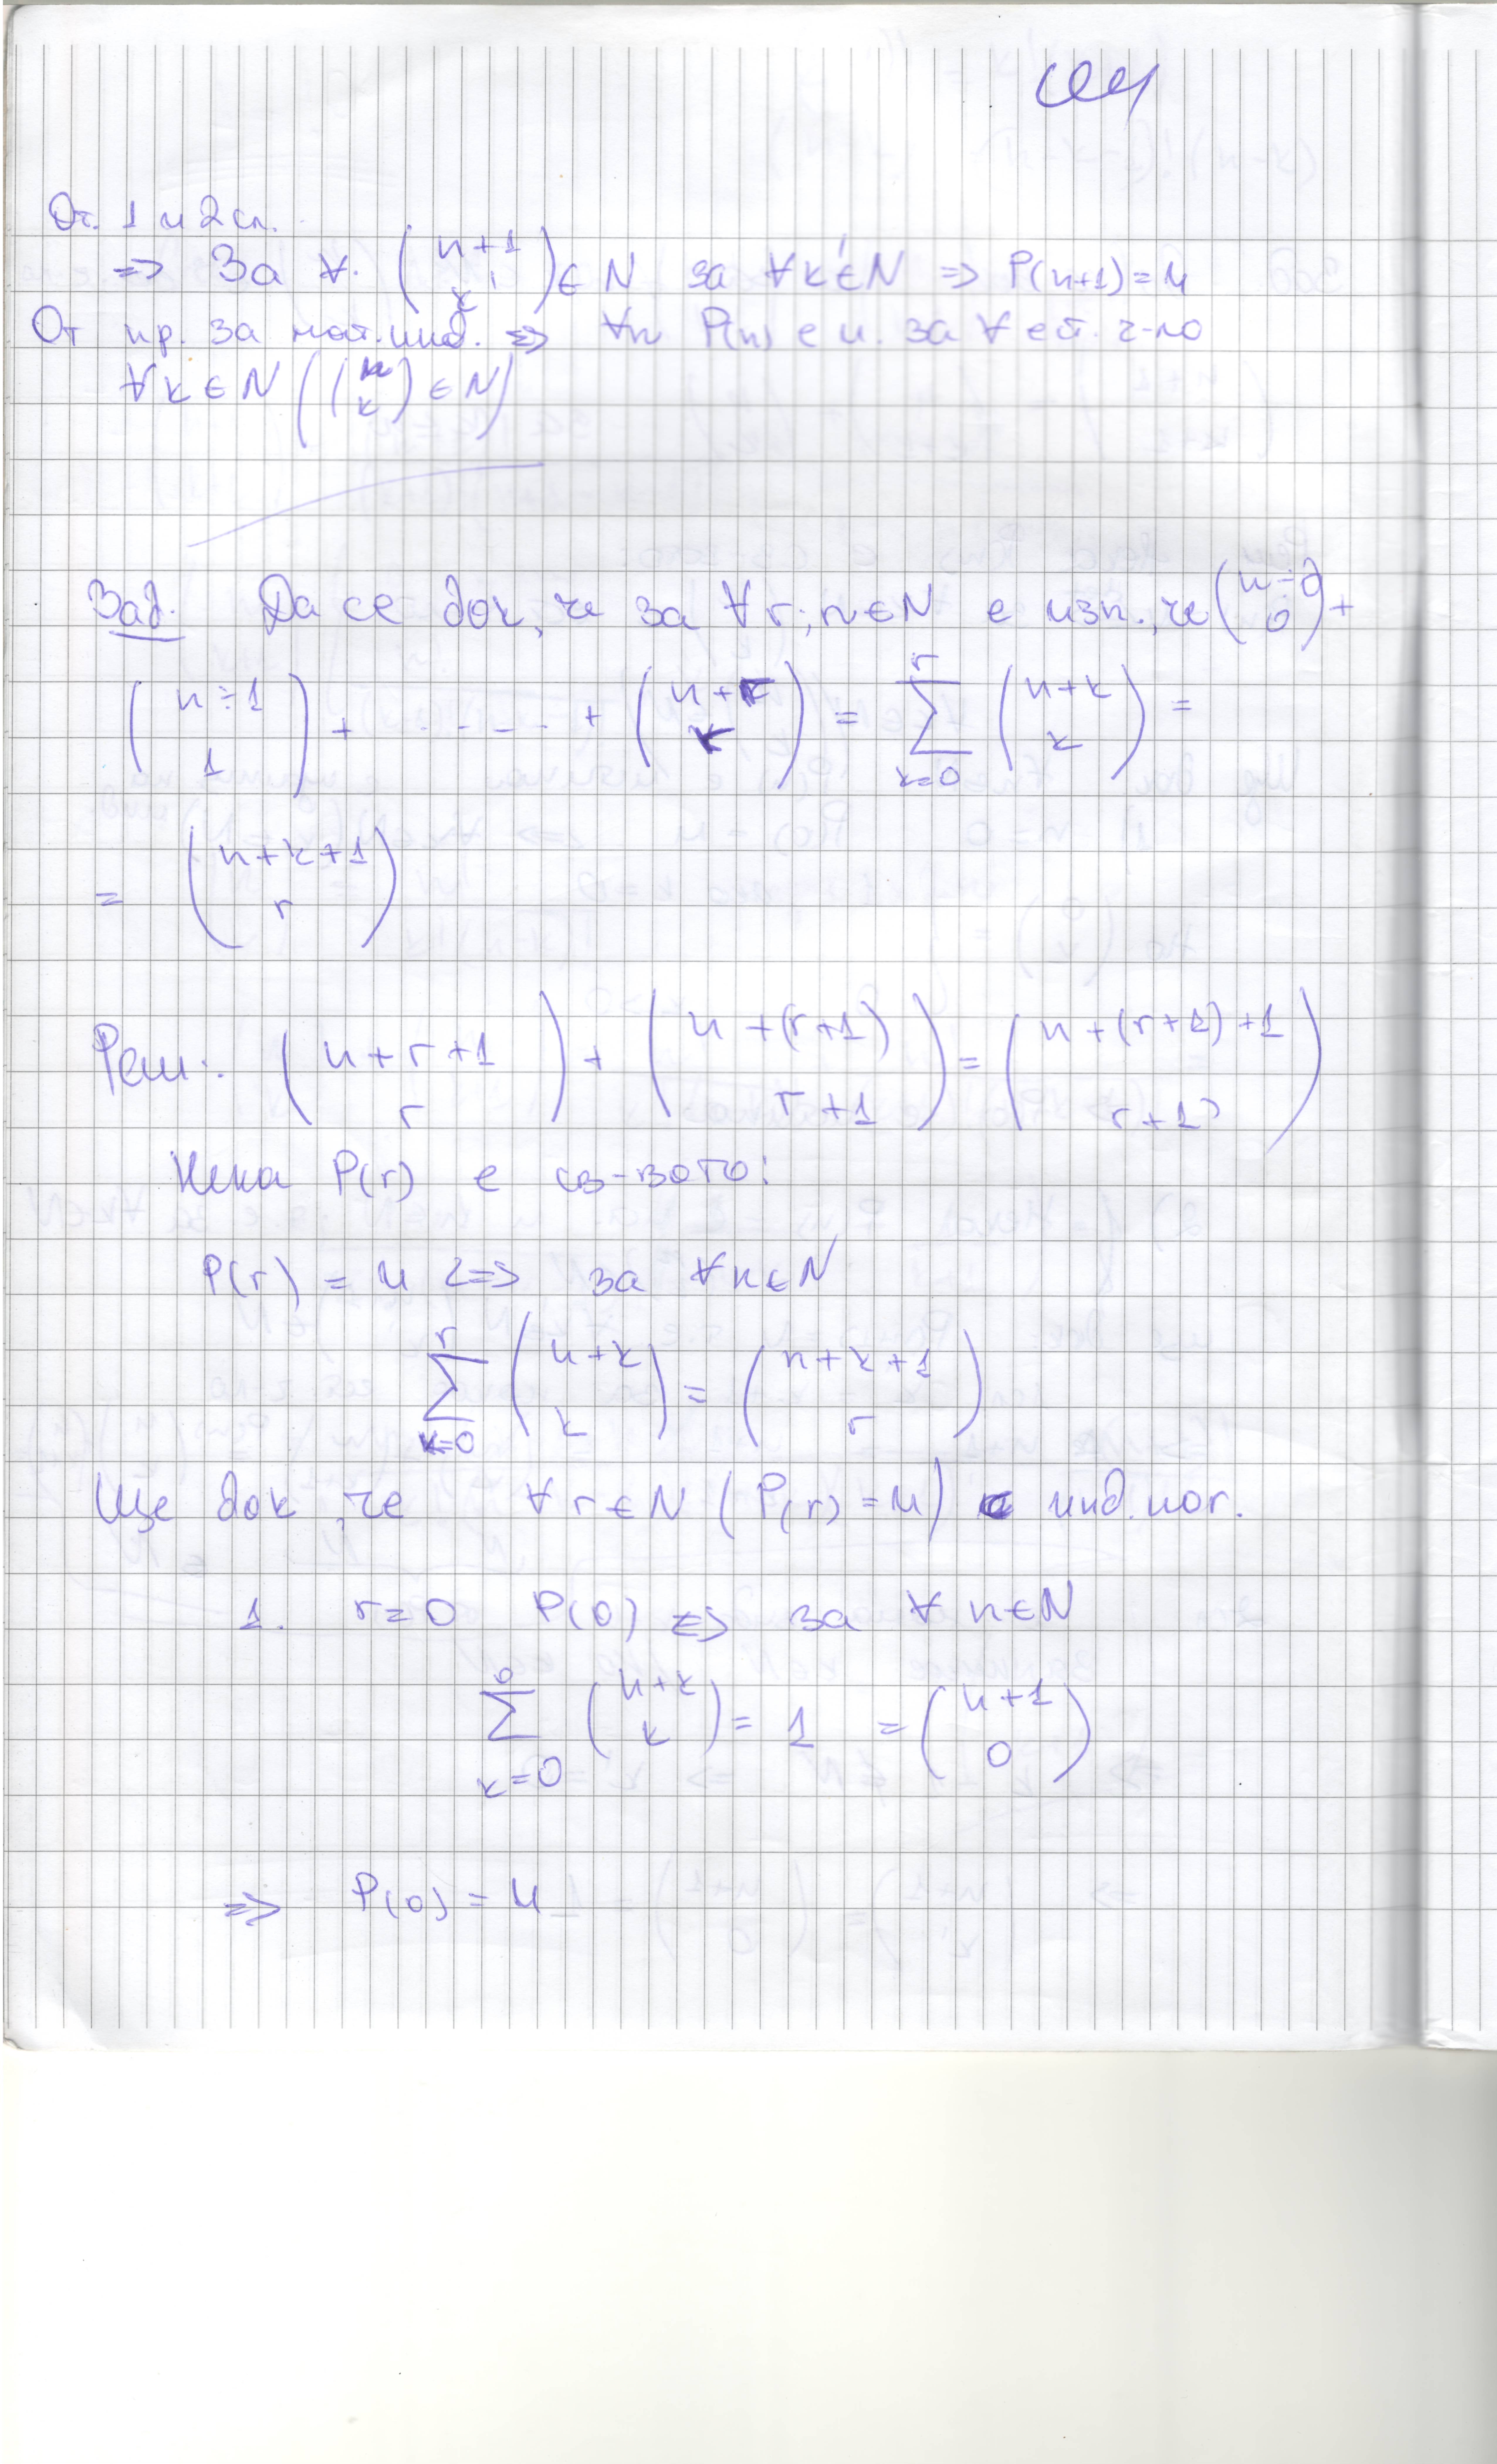 От 1 и 2 сл.
=> За ∀. (n+1 k') ∈ N за ∀k'∈N => P(n+1) = И
От пр. за мат. инд. => ∀n P(n) е и. за ∀ ест. ч-ло
∀k∈N ((n k) ∈ N)
Зад. Да се док, че за ∀r; n∈N е изп., че (n+0 0) +
(n+1 1) + ..... + (n+r r) = ∑ k=0 r (n+k k) =
= (n+k+1 r)
Реш: (n+r+1 r) + (n+(r+1) r+1) = (n+(r+1)+1 r+1)
Нека P(r) е св-вото:
P(r) = И <=> за ∀n∈N
∑ k=0 r (n+k k) = (n+k+1 r)
Ще док, че ∀r∈N (P(r) = И) с инд. по r.
1. r=0 P(0) <=> за ∀ n∈N
∑ k=0 0 (n+k k) = 1 = (n+1 0)
=> P(0) = И